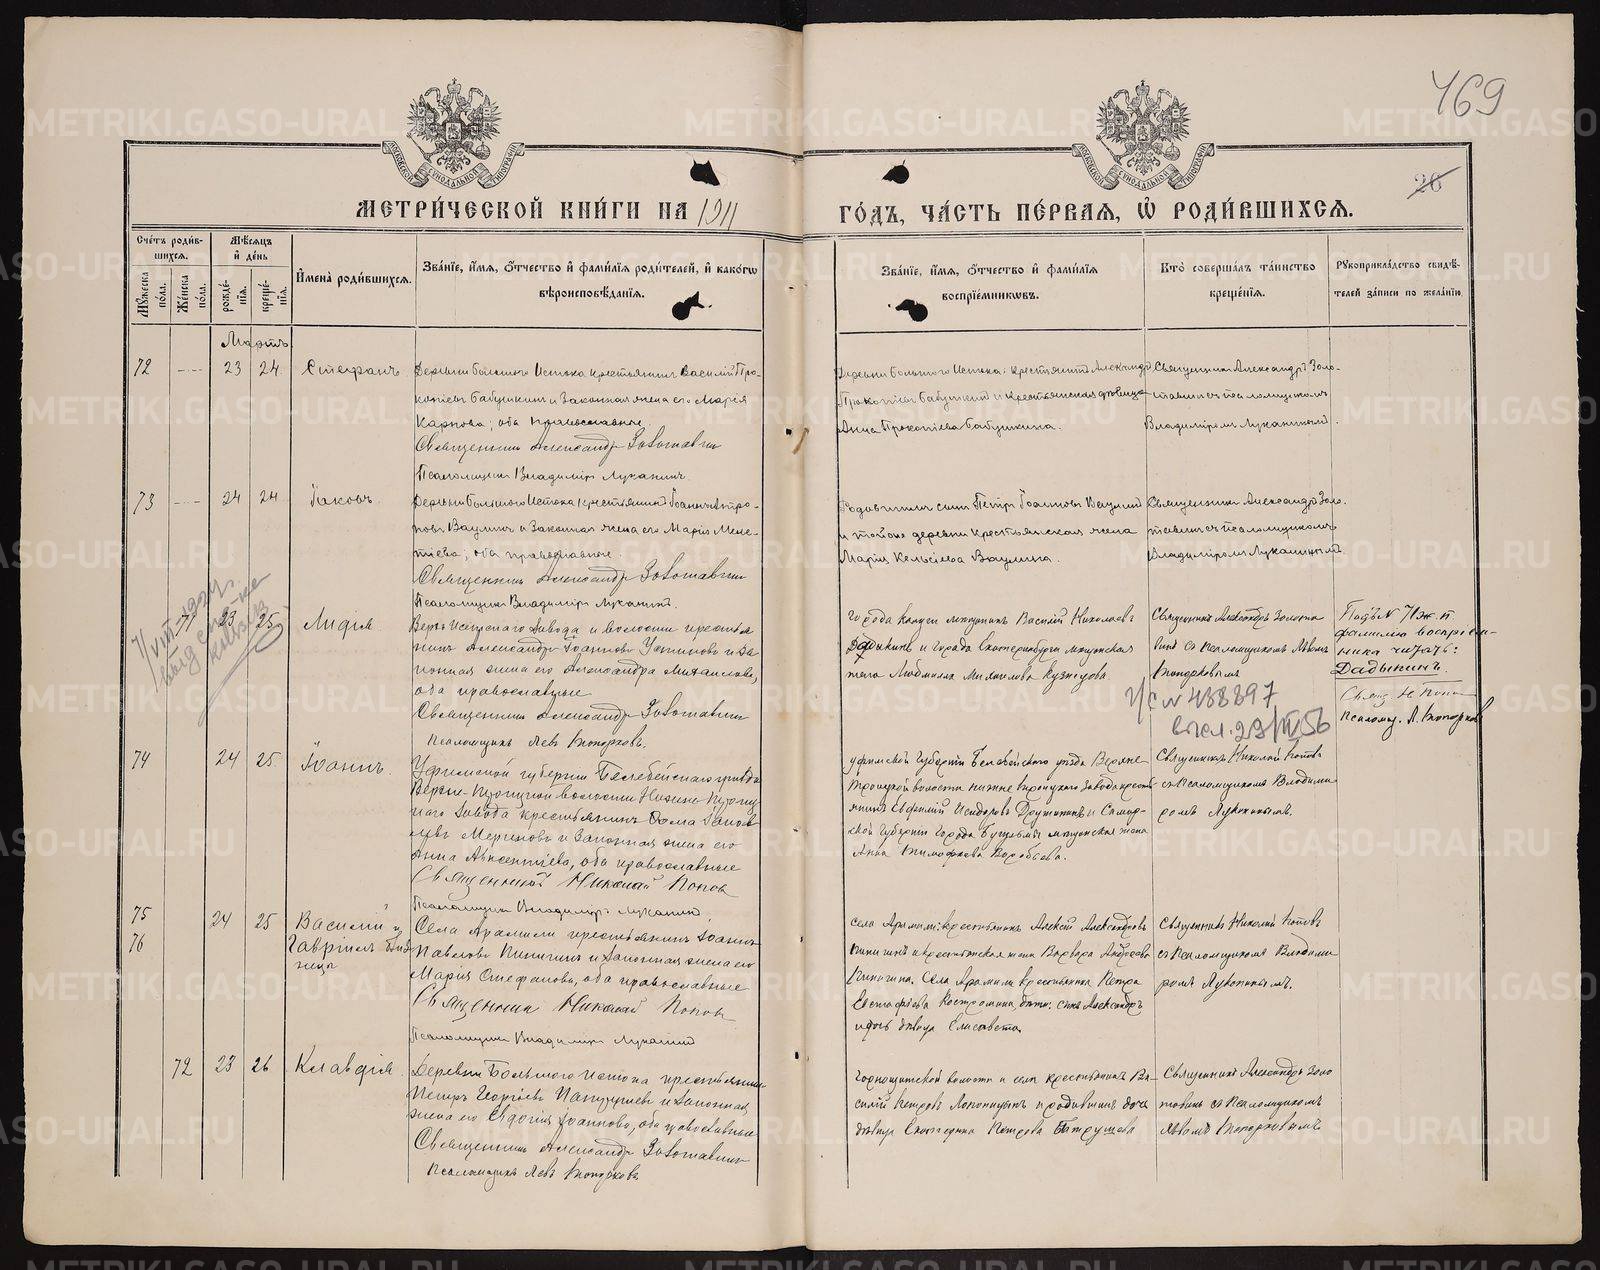 469
26
МЕТРИ́ЧЕСКОЙ КНИ́ГИ НА 1911
ГО́ДЪ, ЧА́СТЬ ПЕ́РВАЯ, Ѡ҆ РОДИ́ВШИХСЯ.
Сче́тъ роди́вшихся.
Мꙋ́жеска по́ла.
Же́нска по́ла.
Мѣ́сяцъ и҆ де́нь
рожде́нїя.
креще́нїя.
И҆мена̀ роди́вшихся.
Зва́нїе, и҆́мя, ѻ҆́тчество и҆ фами́лїя роди́телей, и҆ како́гѡ
вѣроисповѣ́данїя.
Зва́нїе, и҆́мя, ѻ҆́тчество и҆ фами́лїя
воспрїе́мникѡвъ.
Кто̀ соверша́лъ та́инство
креще́нїя.
Рꙋкоприкла́дство свидѣ́-
телей за́писи по жела́нїю.
Мартъ
72 23 24 Стефанъ
Деревни Большого Истока крестьянинъ Василий Про-
копіевъ Бабушкинъ и законная жена его Марія
Карпова, оба православные
Священникъ Александръ Золотавинъ
Псаломщикъ Владиміръ Луканинъ
Деревни Большого Истока: крестьянинъ Александръ
Прокопіевъ Бабушкинъ и крестьянская дѣвица
Анна Прокопіева Бабушкина.
Священникъ Александръ Золо-
тавинъ съ псаломщикомъ
Владиміромъ Луканинымъ.
73 24 24 Іаковъ
Деревни Большого Истока крестьянинъ Іоаннъ Петро-
повъ Ваулинъ и законная жена его Марія Меле-
тіева, оба православные.
Священникъ Александръ Золотавинъ
Псаломщикъ Владиміръ Луканинъ.
Родившихъ сынъ Петръ Іоанновъ Ваулинъ
и тойже деревни крестьянская жена
Марія Кельсіева Ваулина.
Священникъ Александръ Золо-
тавинъ съ псаломщикомъ
Владиміромъ Луканинымъ.
71 23 25 Лидія
Верхъ Исетскаго завода и волости крестья
нинъ Александръ Іоанновъ Устиновъ и за
конная жена его Александра Михаилова,
оба православные
Священникъ Александръ Золотавинъ
Псаломщикъ Левъ Топорковъ.
Города Калуги мѣщанинъ Василій Николаевъ
Дадыкинъ и города Екатеринбурга мѣщанская
жена Людмила Михаилова Кузнецова
Священникъ Александръ Золота
винъ съ Псаломщикомъ Львомъ
Топорковымъ
Подъ № 71 ж. п.
фамилію воспріем-
ника читать:
Дадыкинъ.
Свящ. Н. Попов
Псаломщ. Л. Топорков
г/с № 488897
74 24 25 Іоаннъ
Уфимской губерніи Белебейскаго уѣзда
Верхне-Троицкой волости Нижне-Троиц
каго завода крестьянинъ Фома Іаков
левъ Мериновъ и законная жена его
Анна Авксентіева, оба православные
Священникъ Николай Поповъ
Псаломщикъ Владиміръ Луканинъ.
Уфимской Губерніи Белебейского уѣзда Верхне-
Троицкой волости Нижне Троицкаго завода крестъ
янинъ Евфимій Исидоровъ Дружининъ и Самар-
ской Губерніи Города Бугульмы мѣщанская жена
Анна Тимофеева Воробьева.
Священникъ Николай Поповъ
съ Псаломщикомъ Владими-
ромъ Луканинымъ.
75
76 24 25 Василій и
Гавріилъ близ-
нецы
Села Арамили крестьянинъ Іоаннъ
Павловъ Кинигинъ и законная жена его
Марія Стефанова, оба православные
Священникъ Николай Поповъ
Псаломщикъ Владиміръ Луканинъ
Села Арамили: крестьянинъ Алексѣй Александровъ
и крестьянская жена Варвара Андреева
Села Арамили крестьянина Петра
Евстафіева Костромина дѣти: сынъ Александръ
и дочь дѣвица Елисавета.
Священникъ Николай Поповъ
съ Псаломщикомъ Владими-
ромъ Луканинымъ.
72 23 26 Клавдія
Деревни Большого Истока крестьянинъ
Петръ Георгіевъ Патрушевъ и законная
жена его Евдокія Іоаннова, оба православные
Священникъ Александръ Золотавинъ
Псаломщикъ Левъ Топорковъ
Горнощитской волости и села крестьянинъ Ва-
силій Петровъ и родившихъ дочь
дѣвица Екатерина Петрова Патрушева
Священникъ Александръ Золо
тавинъ съ Псаломщикомъ
Львомъ Топорковымъ
METRIKI.GASO-URAL.RU